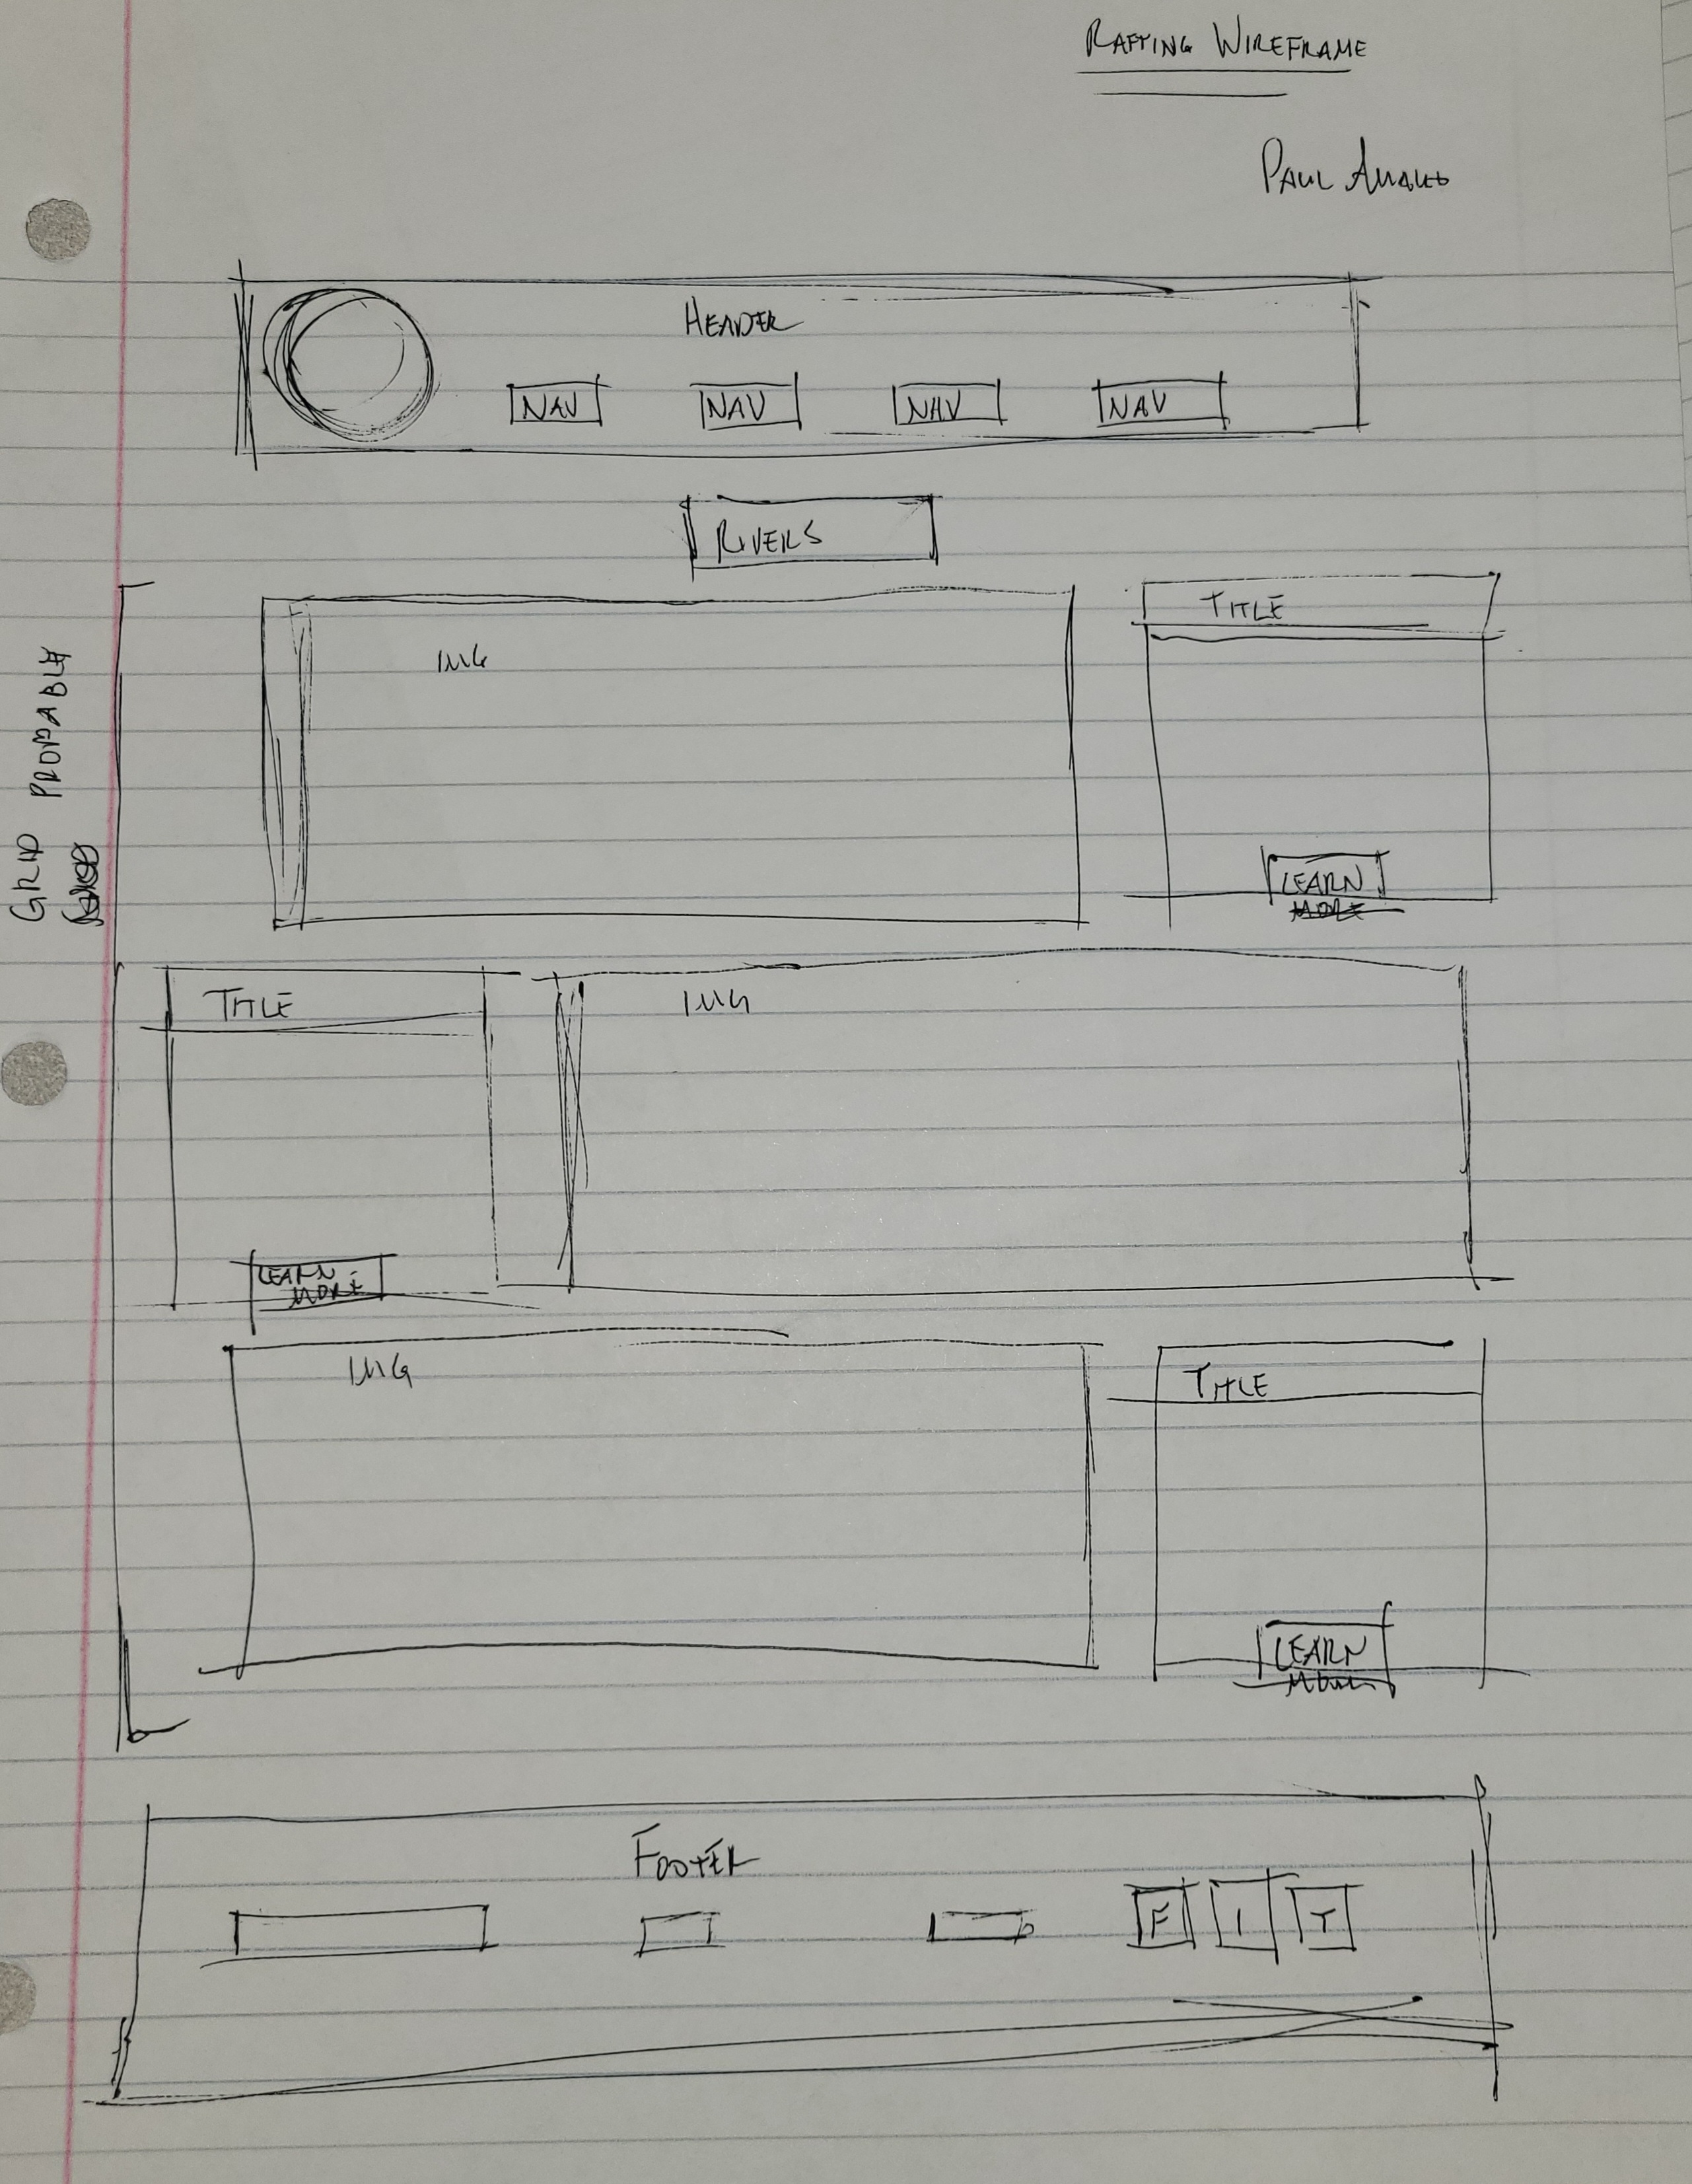 RAFTING WIREFRAME
PAUL
HEADER
NAV NAV NAV NAV
RIVERS
GRID PROBABLY
IMG
TITLE
LEARN
MORE
TITLE
IMG
LEARN
MORE
IMG
TITLE
LEARN
MORE
FOOTER
F I T